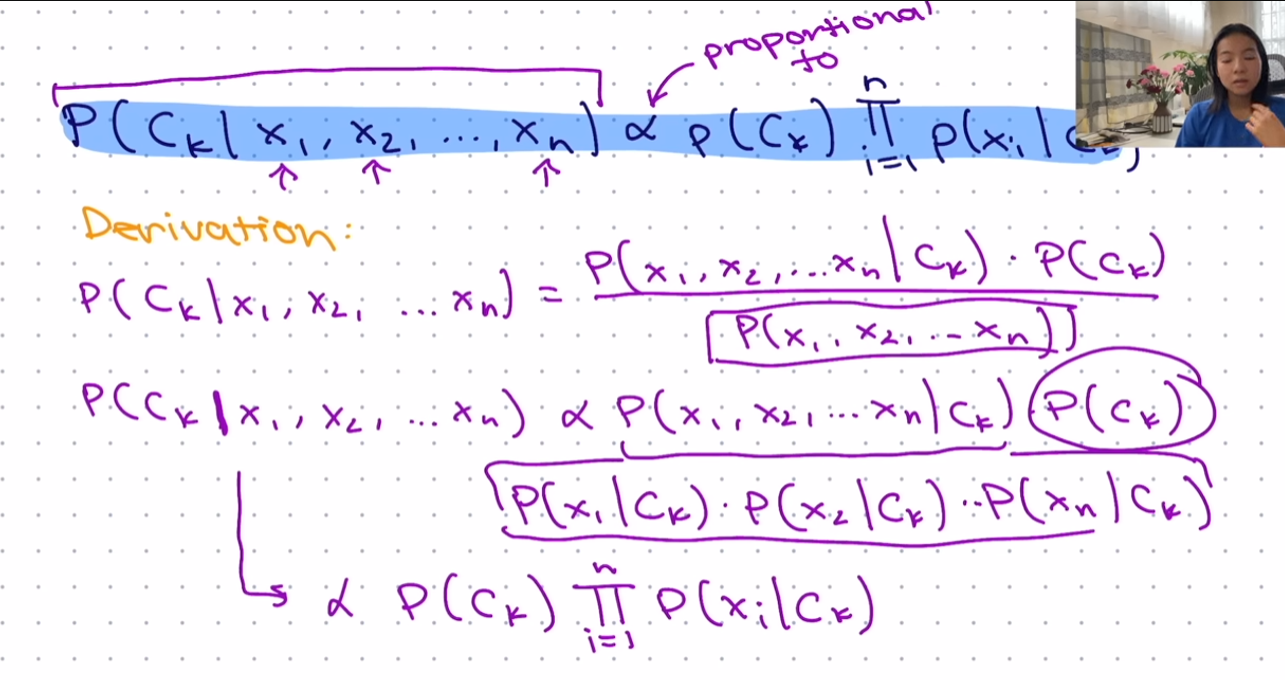 proportional
to
P(Ck | x1, x2, ..., xn) ∝ p(Ck) ∏ i=1 n p(xi |
Derivation:
P(Ck | x1, x2, ... xn) = P(x1, x2, ... xn | Ck) · P(Ck)
P(x1, x2, ... xn)
P(Ck | x1, x2, ... xn) ∝ P(x1, x2, ... xn | Ck) P(Ck)
P(x1 | Ck) · P(x2 | Ck) ·· P(xn | Ck)
∝ P(Ck) ∏ i=1 n P(xi | Ck)